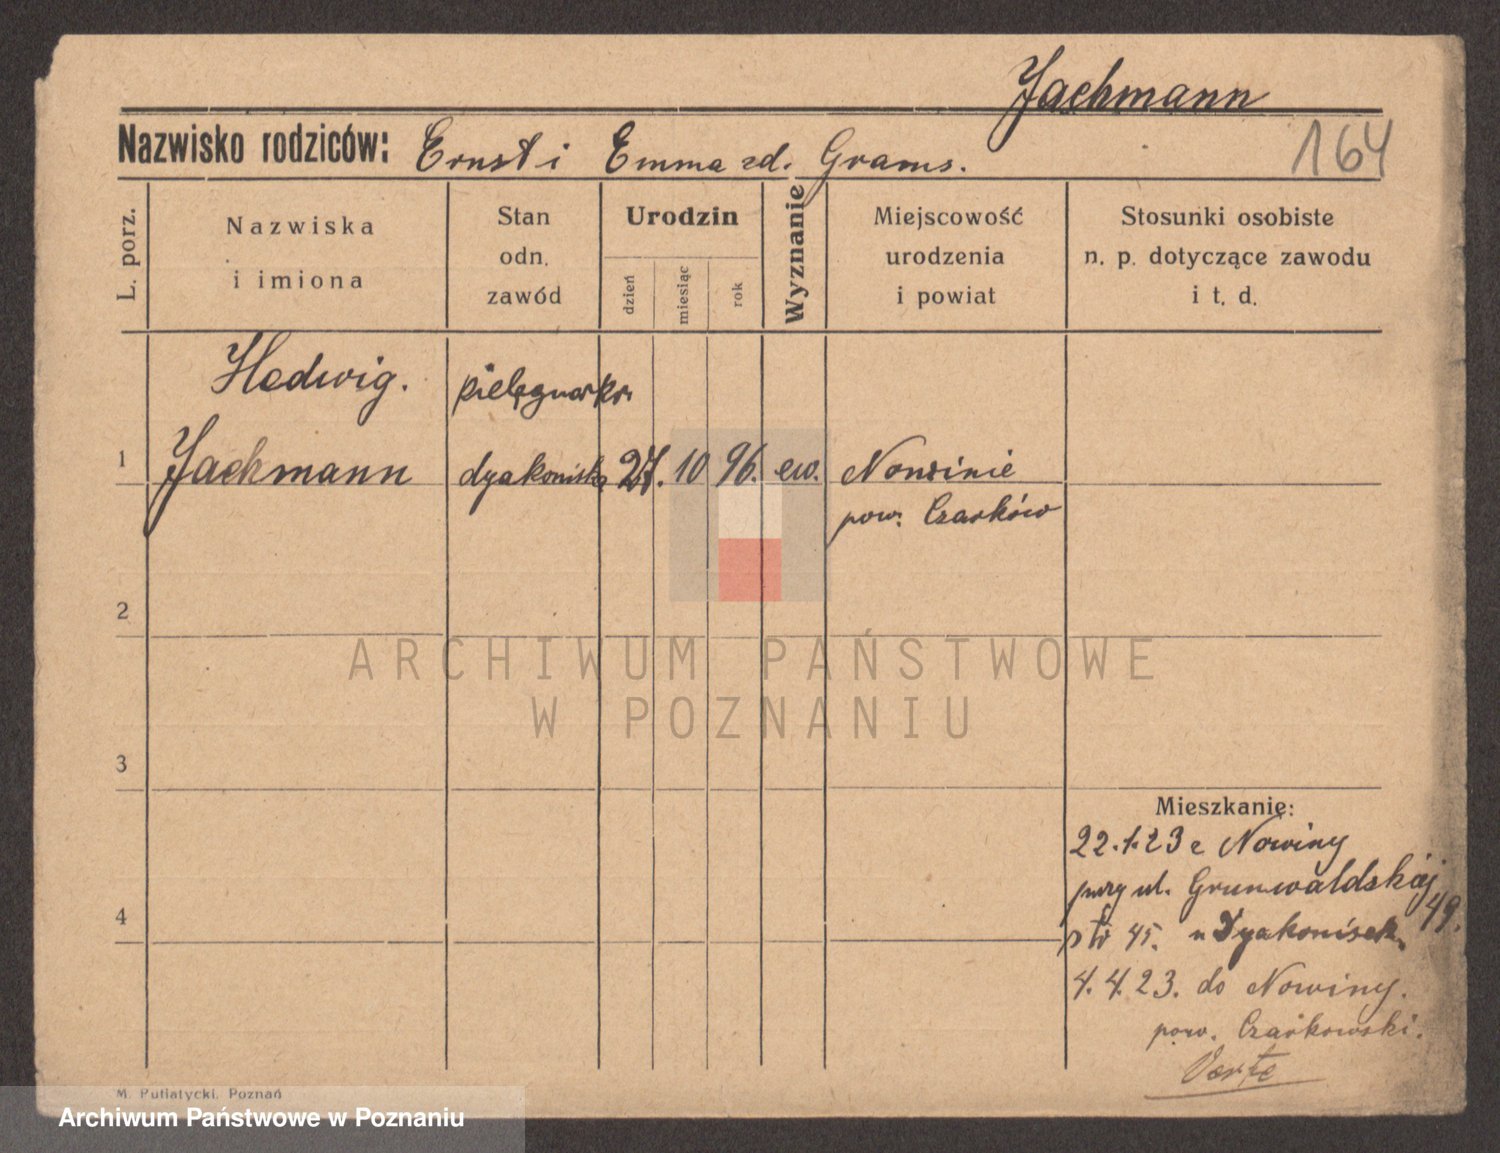 Jachmann
Nazwisko rodziców: Ernst i Emma zd. Grams.
164
L. porz.
Nazwiska
i imiona
Stan
odn.
zawód
Urodzin
dzień
miesiąc
rok
Wyznanie
Miejscowość
urodzenia
i powiat
Stosunki osobiste
n. p. dotyczące zawodu
i t. d.
Hedwig. pielęgniarka
1 Jachmann dyakoniska 27. 10 96. ew. Nowinie
pow. Czarków
2
ARCHIWUM PAŃSTWOWE
W POZNANIU
3
Mieszkanie:
22.1.23 z Nowiny
przy ul. Grunwaldskiej
49.
45. u Dyakonisek
4
4.4.23. do Nowiny.
pow. Czarkowski.
Verte
M. Putiatycki, Poznań
Archiwum Państwowe w Poznaniu